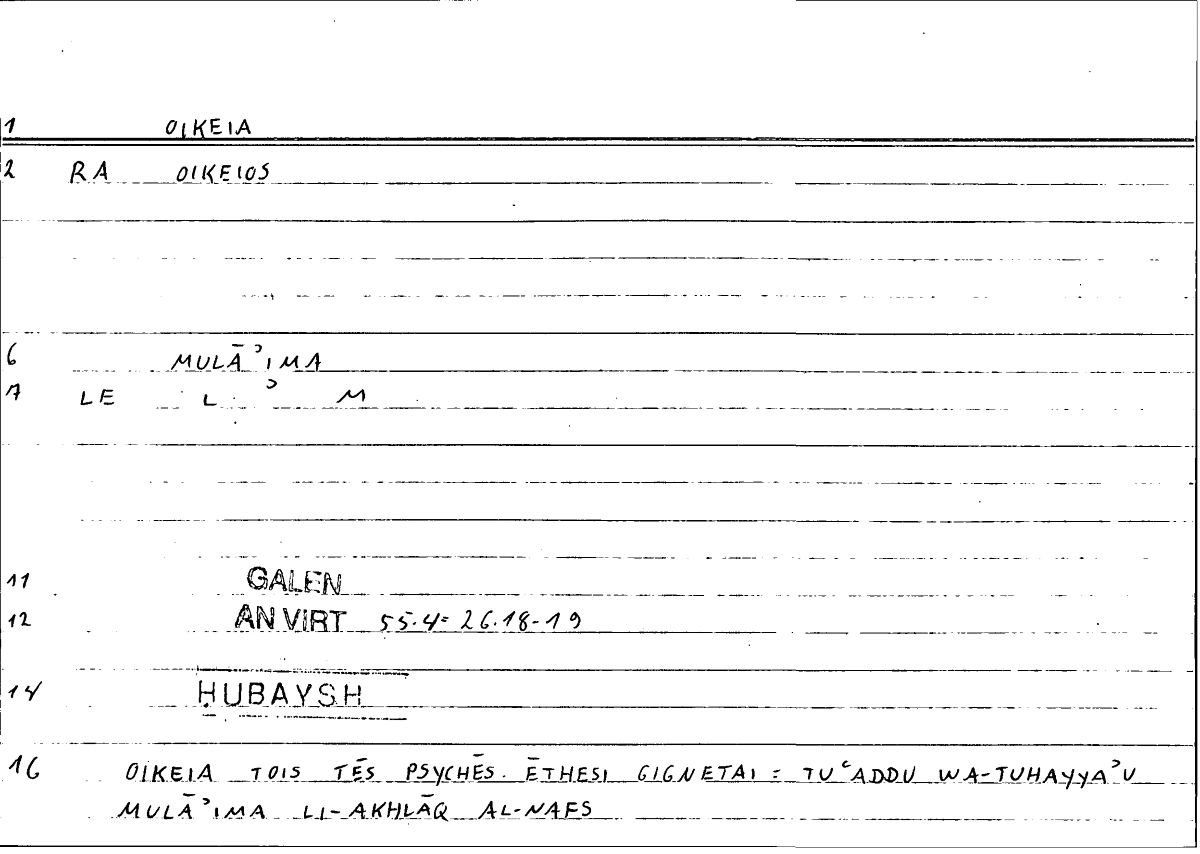 1 OIKEIA
2 RA OIKEIOS
6 MULĀʾIMA
7 LE L ʾ M
11 GALEN
12 AN VIRT 55.4= 26.18-19
14 ḤUBAYSH
16 OIKEIA TOIS TĒS PSYCHĒS ĒTHESI GIGNETAI = TUʿADDU WA-TUHAYYAʾU
MULĀʾIMA LI-AKHLĀQ AL-NAFS